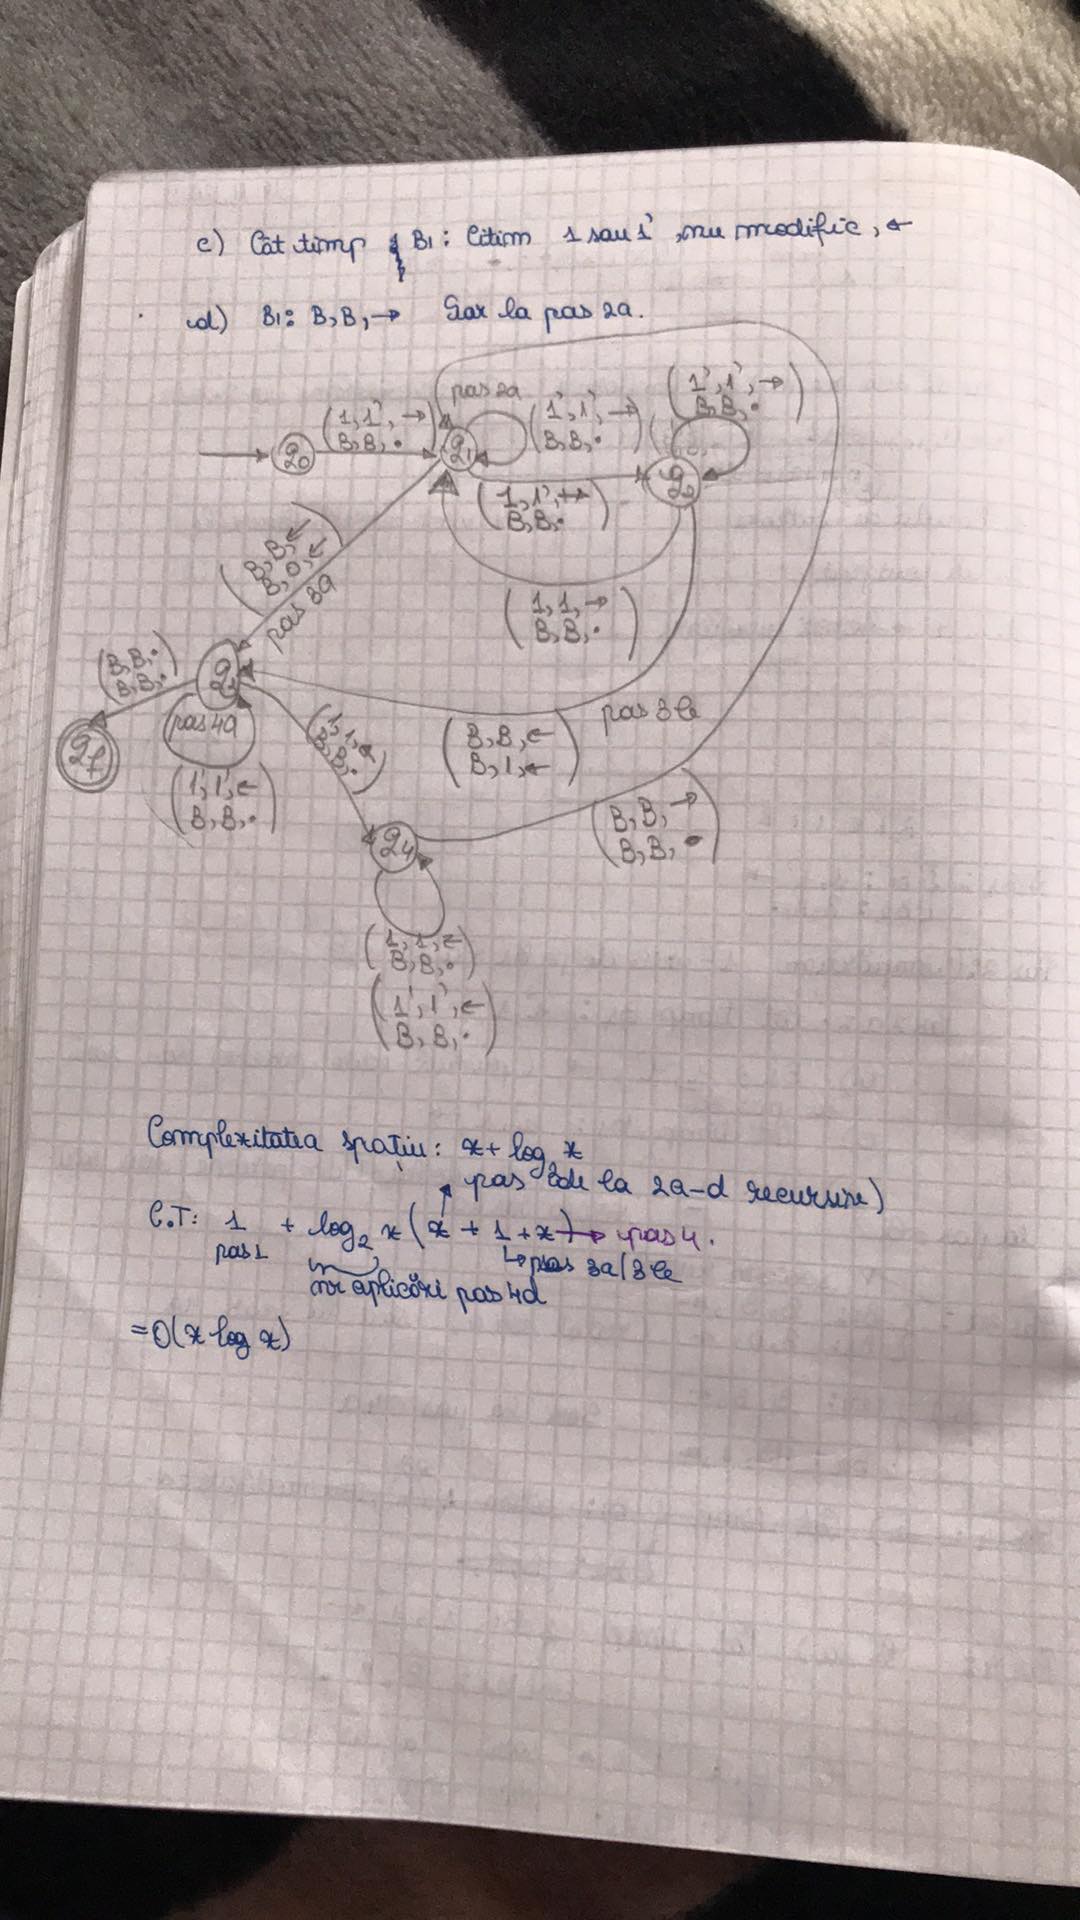 c) Cât timp B1: Citim 1 sau 1', nu modific, ←
d) B1: B,B,→ Sar la pas 2a.
pas 2a
(1', 1', →
B, B, •)
(1, 1', →
B, B, •)
(1', 1', →
B, B, •)
q0
q1
q2
(1, 1',
B, B, •)
(B, B, ←
B, 0, ←)
pas 3a
(1, 1, →
B, B, •)
(B, B, •
B, B, •)
q3
pas 3b
qf
pas 4a
(1, 1, ←
B, B, •)
(B, B, ←
B, 1, ←)
(1', 1', ←
B, B, •)
(B, B, →
B, B, •)
q4
(1, 1, ←
B, B, •)
(1', 1', ←
B, B, •)
Complexitatea spațiu: x + log x
pas de la 2a-d recursiv)
C.T: 1 + log2 x (x + 1 + x) → pas 4.
pas 1
↳ pas 3a/3b
nr aplicări pas 4d
= O(x log x)